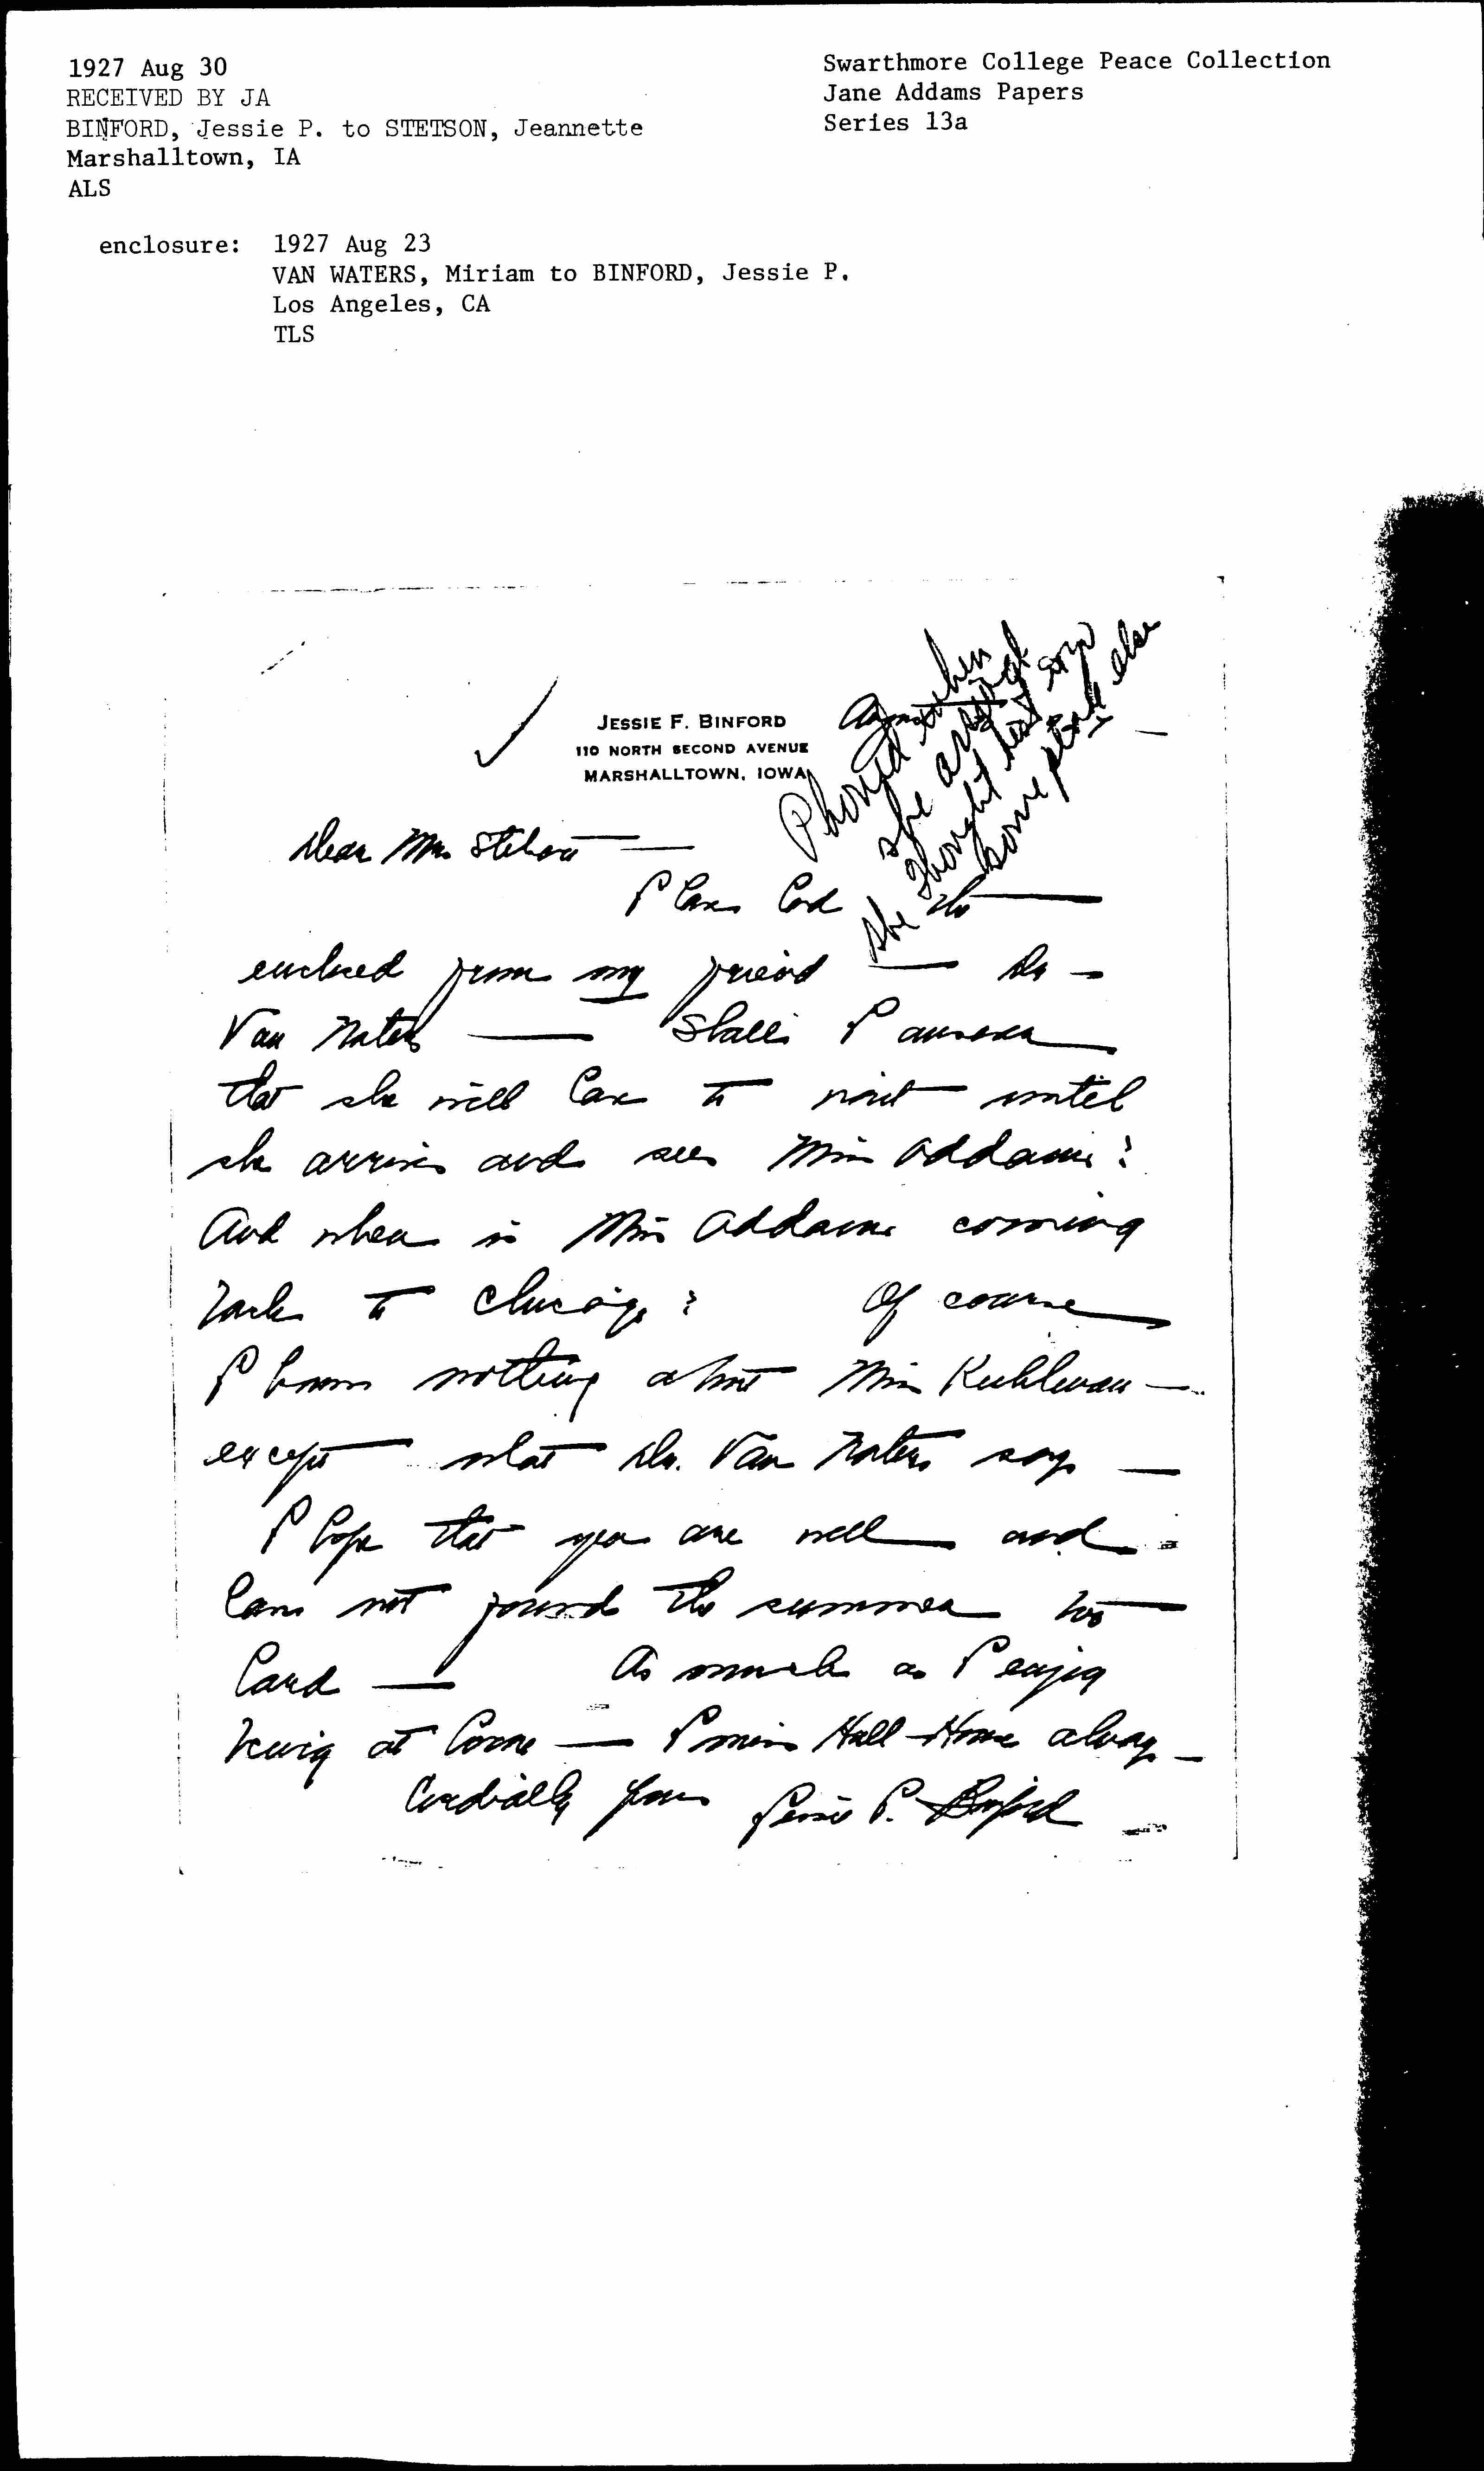 1927 Aug 30
RECEIVED BY JA
BINFORD, Jessie P. to STETSON, Jeannette
Marshalltown, IA
ALS
enclosure: 1927 Aug 23
VAN WATERS, Miriam to BINFORD, Jessie P.
Los Angeles, CA
TLS
Swarthmore College Peace Collection
Jane Addams Papers
Series 13a
JESSIE F. BINFORD
110 NORTH SECOND AVENUE
MARSHALLTOWN, IOWA
Phoned when
she arrived
She thought best to
some place else
Dear Mrs. Stetson —
I have had the
enclosed from my friend — Dr —
Van Waters — Shall I answer
that she will have to wait until
she arrives and sees Miss Addams?
And when is Miss Addams coming
back to Chicago? Of course
I know nothing about Miss Kuhlman —
except what Dr. Van Waters says —
I hope that you are well and
have not found the summer too
hard — As much as I enjoy
being at home — I miss Hull-House always —
Cordially yours Jessie F. Binford